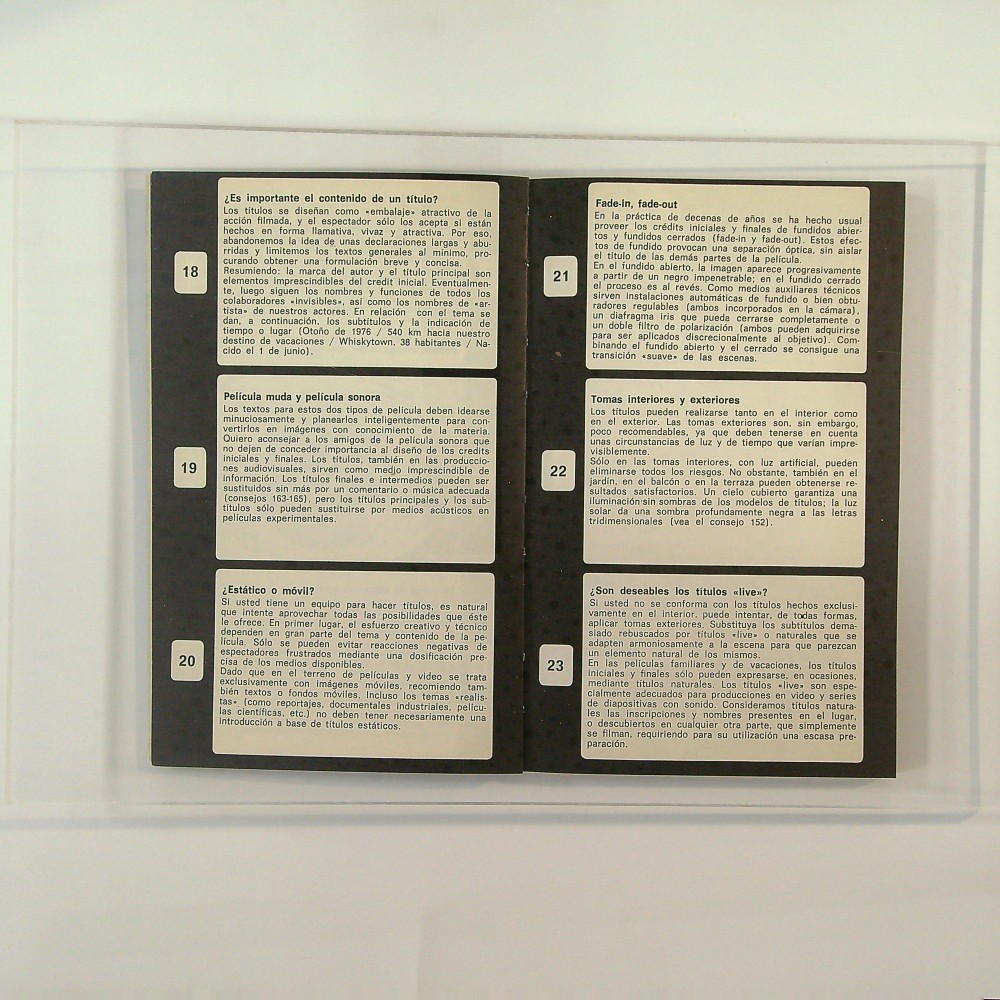 18
¿Es importante el contenido de un título?
Los títulos se diseñan como «embalaje» atractivo de la
acción filmada, y el espectador sólo los acepta si están
hechos en forma llamativa, vivaz y atractiva. Por eso,
abandonemos la idea de unas declaraciones largas y abu-
rridas y limitemos los textos generales al mínimo, pro-
curando obtener una formulación breve y concisa.
Resumiendo: la marca del autor y el título principal son
elementos imprescindibles del credit inicial. Eventualmen-
te, luego siguen los nombres y funciones de todos los
colaboradores «invisibles», así como los nombres de «ar-
tista» de nuestros actores. En relación con el tema se
dan, a continuación, los subtítulos y la indicación de
tiempo o lugar (Otoño de 1976 / 540 km hacia nuestro
destino de vacaciones / Whiskytown, 38 habitantes / Na-
cido el 1 de junio).
19
Película muda y película sonora
Los textos para estos dos tipos de película deben idearse
minuciosamente y planearlos inteligentemente para con-
vertirlos en imágenes con conocimiento de la materia.
Quiero aconsejar a los amigos de la película sonora que
no dejen de conceder importancia al diseño de los credits
iniciales y finales. Los títulos, también en las produccio-
nes audiovisuales, sirven como medio imprescindible de
información. Los títulos finales e intermedios pueden ser
sustituidos sin más por un comentario o música adecuada
(consejos 163-165), pero los títulos principales y los sub-
títulos sólo pueden sustituirse por medios acústicos en
películas experimentales.
20
¿Estático o móvil?
Si usted tiene un equipo para hacer títulos, es natural
que intente aprovechar todas las posibilidades que éste
le ofrece. En primer lugar, el esfuerzo creativo y técnico
dependen en gran parte del tema y contenido de la pe-
lícula. Sólo se pueden evitar reacciones negativas de
espectadores frustrados mediante una dosificación pre-
cisa de los medios disponibles.
Dado que en el terreno de películas y video se trata
exclusivamente con imágenes móviles, recomiendo tam-
bién textos o fondos móviles. Incluso los temas «realis-
tas» (como reportajes, documentales industriales, pelícu-
las científicas, etc.) no deben tener necesariamente una
introducción a base de títulos estáticos.
21
Fade-in, fade-out
En la práctica de decenas de años se ha hecho usual
proveer los crédits iniciales y finales de fundidos abier-
tos y fundidos cerrados (fade-in y fade-out). Estos efec-
tos de fundido provocan una separación óptica, sin aislar
el título de las demás partes de la película.
En el fundido abierto, la imagen aparece progresivamente
a partir de un negro impenetrable; en el fundido cerrado
el proceso es al revés. Como medios auxiliares técnicos
sirven instalaciones automáticas de fundido o bien obtu-
radores regulables (ambos incorporados en la cámara),
un diafragma iris que pueda cerrarse completamente o
un doble filtro de polarización (ambos pueden adquirirse
para ser aplicados discrecionalmente al objetivo). Com-
binando el fundido abierto y el cerrado se consigue una
transición «suave» de las escenas.
22
Tomas interiores y exteriores
Los títulos pueden realizarse tanto en el interior como
en el exterior. Las tomas exteriores son, sin embargo,
poco recomendables, ya que deben tenerse en cuenta
unas circunstancias de luz y de tiempo que varían impre-
visiblemente.
Sólo en las tomas interiores, con luz artificial, pueden
eliminarse todos los riesgos. No obstante, también en el
jardín, en el balcón o en la terraza pueden obtenerse re-
sultados satisfactorios. Un cielo cubierto garantiza una
iluminación sin sombras de los modelos de títulos; la luz
solar da una sombra profundamente negra a las letras
tridimensionales (vea el consejo 152).
23
¿Son deseables los títulos «live»?
Si usted no se conforma con los títulos hechos exclusi-
vamente en el interior, puede intentar, de todas formas,
aplicar tomas exteriores. Substituya los subtítulos dema-
siado rebuscados por títulos «live» o naturales que se
adapten armoniosamente a la escena para que parezcan
un elemento natural de los mismos.
En las películas familiares y de vacaciones, los títulos
iniciales y finales sólo pueden expresarse, en ocasiones,
mediante títulos naturales. Los títulos «live» son espe-
cialmente adecuados para producciones en video y series
de diapositivas con sonido. Consideramos títulos natura-
les las inscripciones y nombres presentes en el lugar,
o descubiertos en cualquier otra parte, que simplemente
se filman, requiriendo para su utilización una escasa pre-
paración.